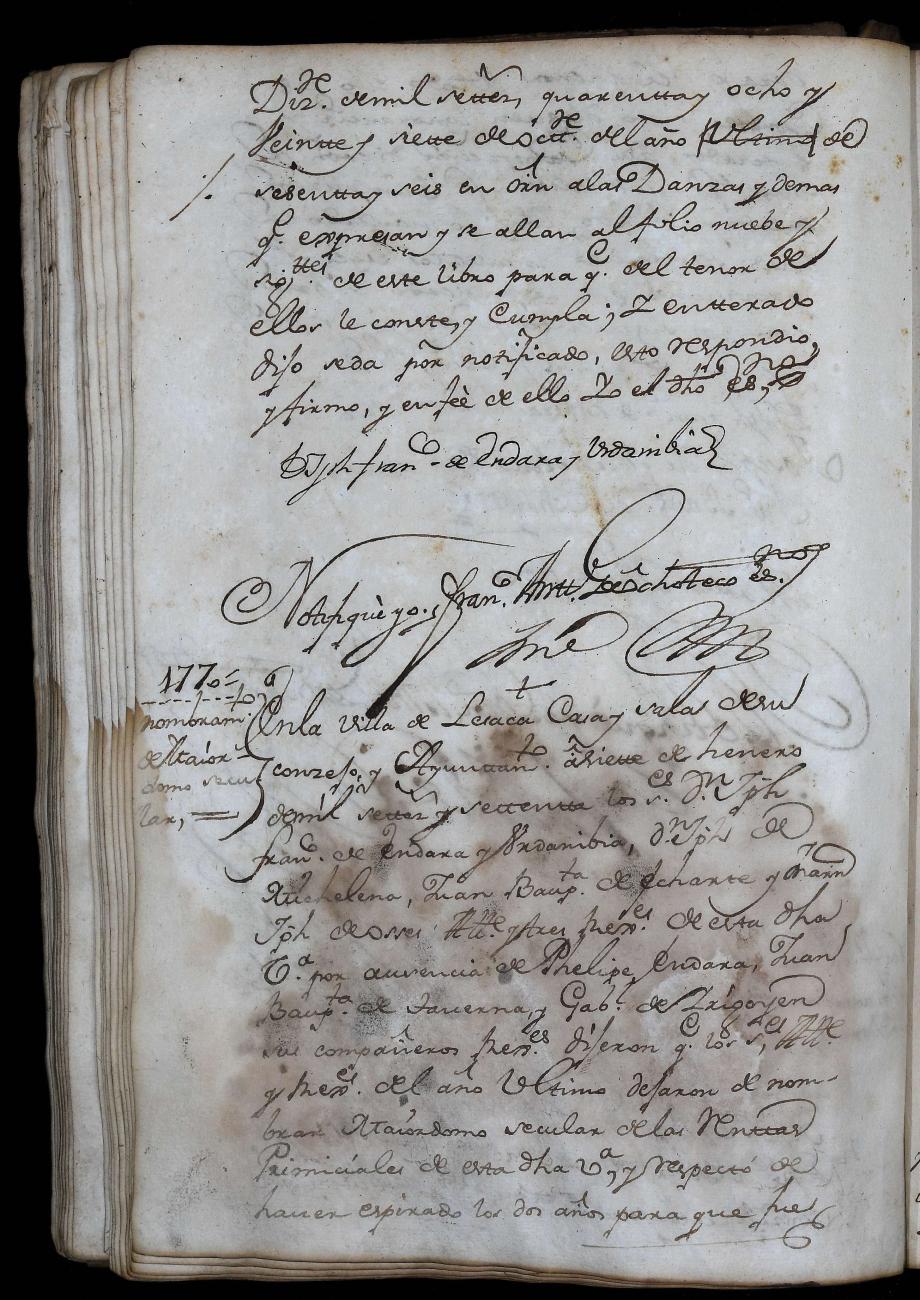 Diz.re de mil setter.s quarentta y ocho y
Veintte y siette de octt.re del año ultimo de
sesentta y seis en orn a las Danzas y demas
q.e expresan y se allan al folio nuebe y
sig.ttes de este libro para q.e del tenor de
ellos le conste, y Cumpla; Y entterado
dijo se da por notificado, esto respondio,
y firmo, y en feè de ello Yo el dho es.no
D Jph fran.co de Endara y Vrdanibia
Notifiquè yo, Fran.co Antt. es.no
1770
nombram.to
de Maior-
domo secu
lar,
En la Villa de Lesaca Casa y salas de su
conzejo, y Ayunttam.to à siette de henero
de mil setter.s y settentta los s.res D.n Jph
fran.co de Endara y Vrdanibia, D.n Jph de
Juan Baup.ta de Echarte y Marn
Jph de osses Alc.e y tres Rex.es de esta dha
V.a por ausencia de Phelipe Endara, Juan
Baup.ta de taverna, y Gab.l de Yrigoyen
sus compañeros Rex.es dijeron q.e los s.res Alc.e
y Rex.es del año Ultimo dejaron de nom-
brar Maiordomo secular de las Renttas
Primiciales de esta dha V.a, y respecto de
haver espirado los dos años para que fue